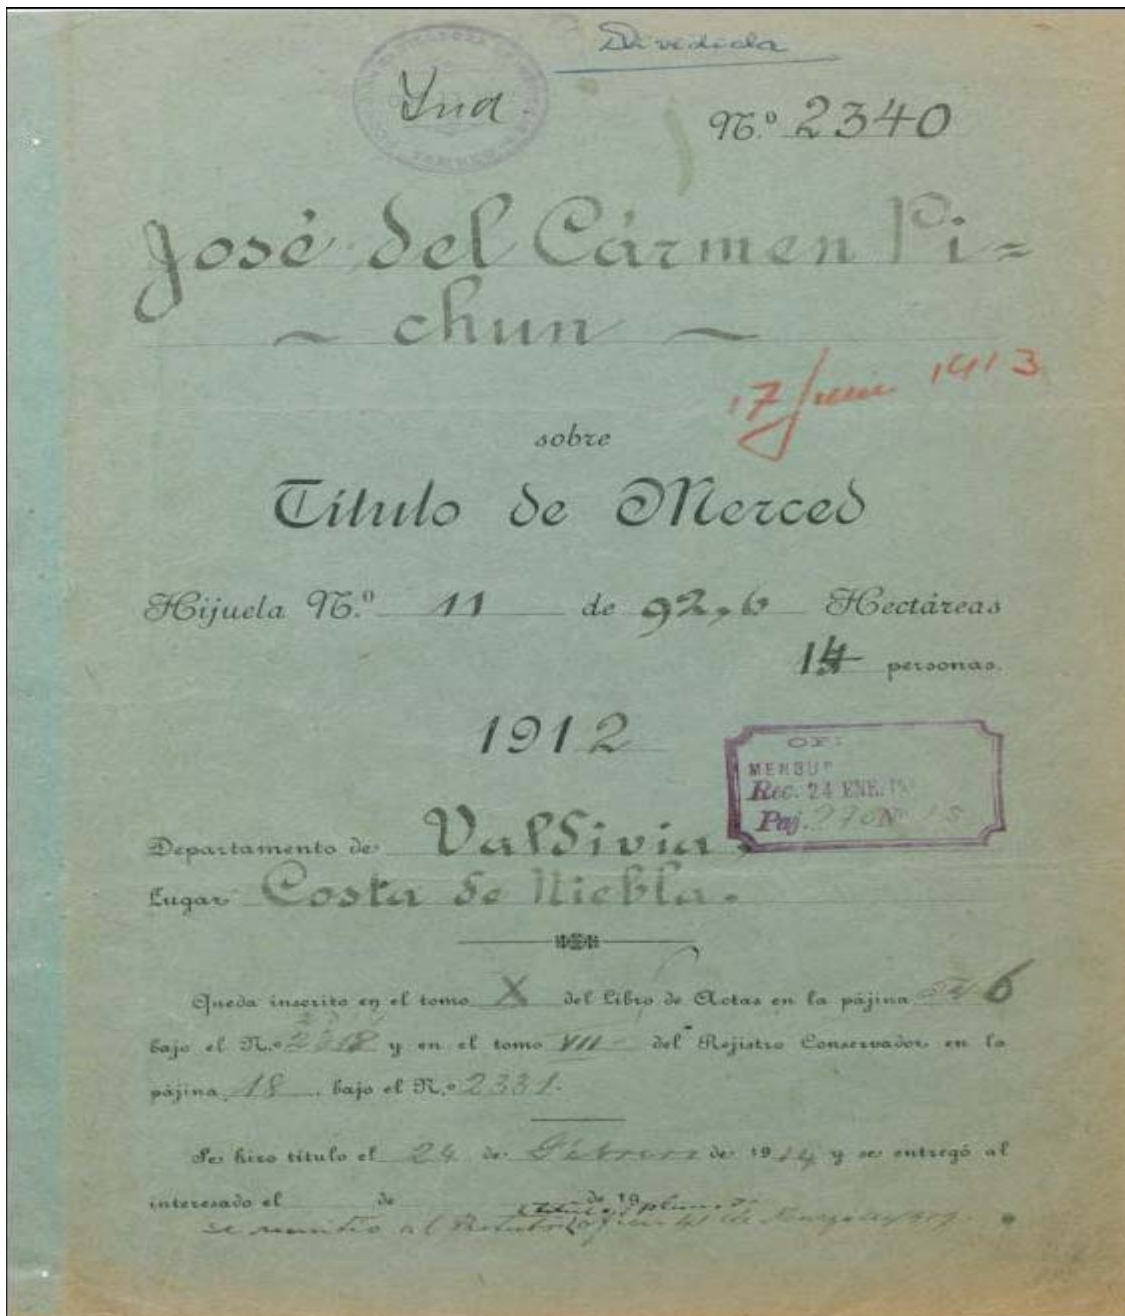 Dividida
Ind.
N.º 2340
José del Cármen Pi=
~ chun ~
17 Junio 1913
sobre
Título de Merced
Hijuela N.º 11 de 92,6 Hectáreas
14 personas.
1912
OF:
MENSUR
Rec. 24 ENE.
Paj. 270 Nº 15
Departamento de Valdivia.
Lugar Costa de Niebla.
Queda inscrito en el tomo X del Libro de Actas en la página 6
bajo el N.º y en el tomo VII del Rejistro Conservador en la
pájina 18 bajo el N.º 2331.
Se hizo título el 24 de Febrero de 1914 y se entregó al
interesado el de de 19
título i plano
se remitió al